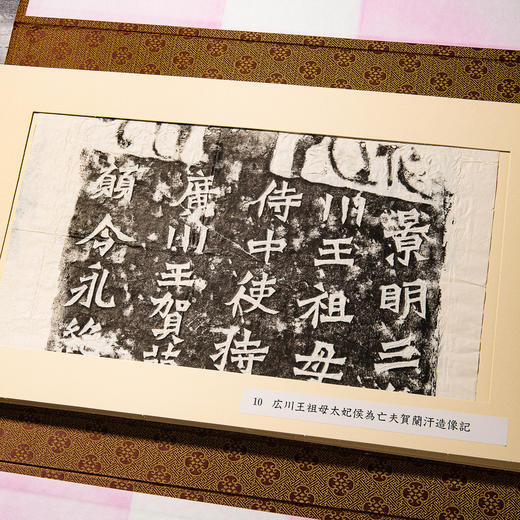 景明三
川王祖母
侍中使持
廣川王賀
願令永
10 広川王祖母太妃侯為亡夫賀蘭汗造像記